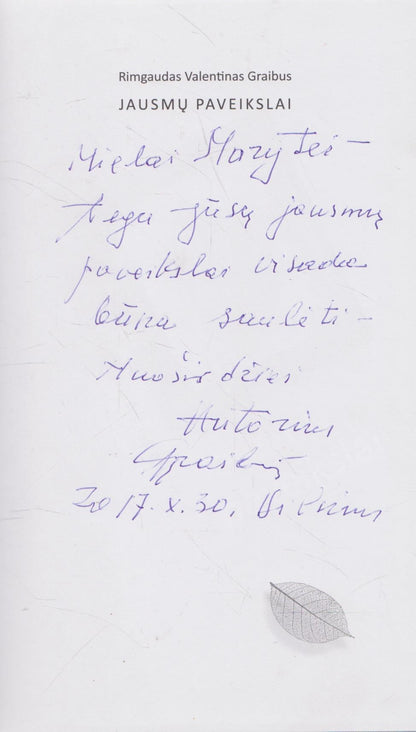 Rimgaudas Valentinas Graibus
JAUSMŲ PAVEIKSLAI
Mielai Marytei –
tegu Jūsų jausmų
paveikslai visada
būna saulėti –
Nuoširdžiai
Autorius
Graibus
2017.X.30, Vilnius